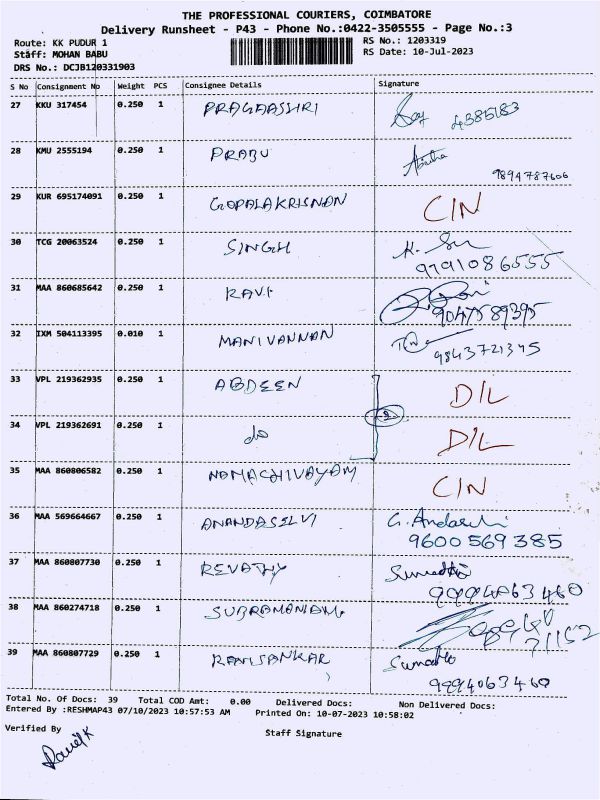 THE PROFESSIONAL COURIERS, COIMBATORE
Delivery Runsheet - P43 - Phone No.:0422-3505555 - Page No.:3
Route: KK PUDUR 1
RS No.: 1203319
Staff: MOHAN BABU
RS Date: 10-Jul-2023
DRS No.: DCJB120331903
S No Consignment No Weight PCS Consignee Details Signature
27 KKU 317454 0.250 1 PRAGAASHRI 4385183
28 KMU 2555194 0.250 1 PRABU 9894787606
29 KUR 695174091 0.250 1 GOPALAKRISHNAN C/N
30 TCG 20063524 0.250 1 SINGH 9791086555
31 MAA 860685642 0.250 1 RAVI 9047589395
32 IXM 504113395 0.010 1 MANIVANNAN 9843721345
33 VPL 219362935 0.250 1 ABDEEN D/L
2
34 VPL 219362691 0.250 1 do D/L
35 MAA 860806582 0.250 1 NAMACHIVAYAM C/N
36 MAA 569664667 0.250 1 ANANDASELVI
9600569385
37 MAA 860807730 0.250 1 REVATHY
9994063460
38 MAA 860274718 0.250 1 SUBRAMANIAM
39 MAA 860807729 0.250 1 RAVISANKAR
9994063460
Total No. Of Docs: 39 Total COD Amt: 0.00 Delivered Docs: Non Delivered Docs:
Entered By :RESHMAP43 07/10/2023 10:57:53 AM Printed On: 10-07-2023 10:58:02
Verified By
Staff Signature